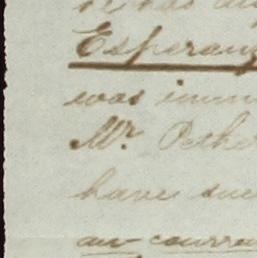 he has
Esperanz
was imm
Mr. Pethe
have suc
au courra